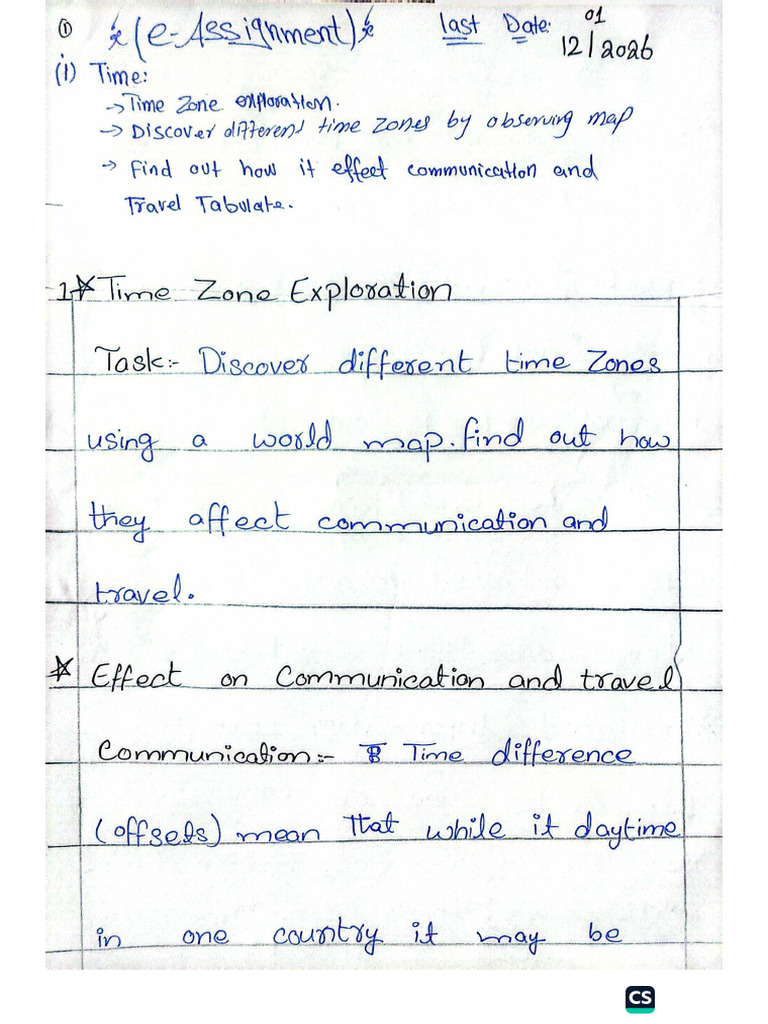 ① (e-Assignment) Last Date: 01
12/2026
(i) Time:
→ Time Zone exploration.
→ Discover different time zones by observing map
→ Find out how it effect communication and
Travel Tabulate.
1* Time Zone Exploration
Task:- Discover different time Zones
using a world map. find out how
they affect communication and
travel.
* Effect on Communication and travel
Communication:- Time difference
(offsets) mean that while it daytime
in one country it may be
CS